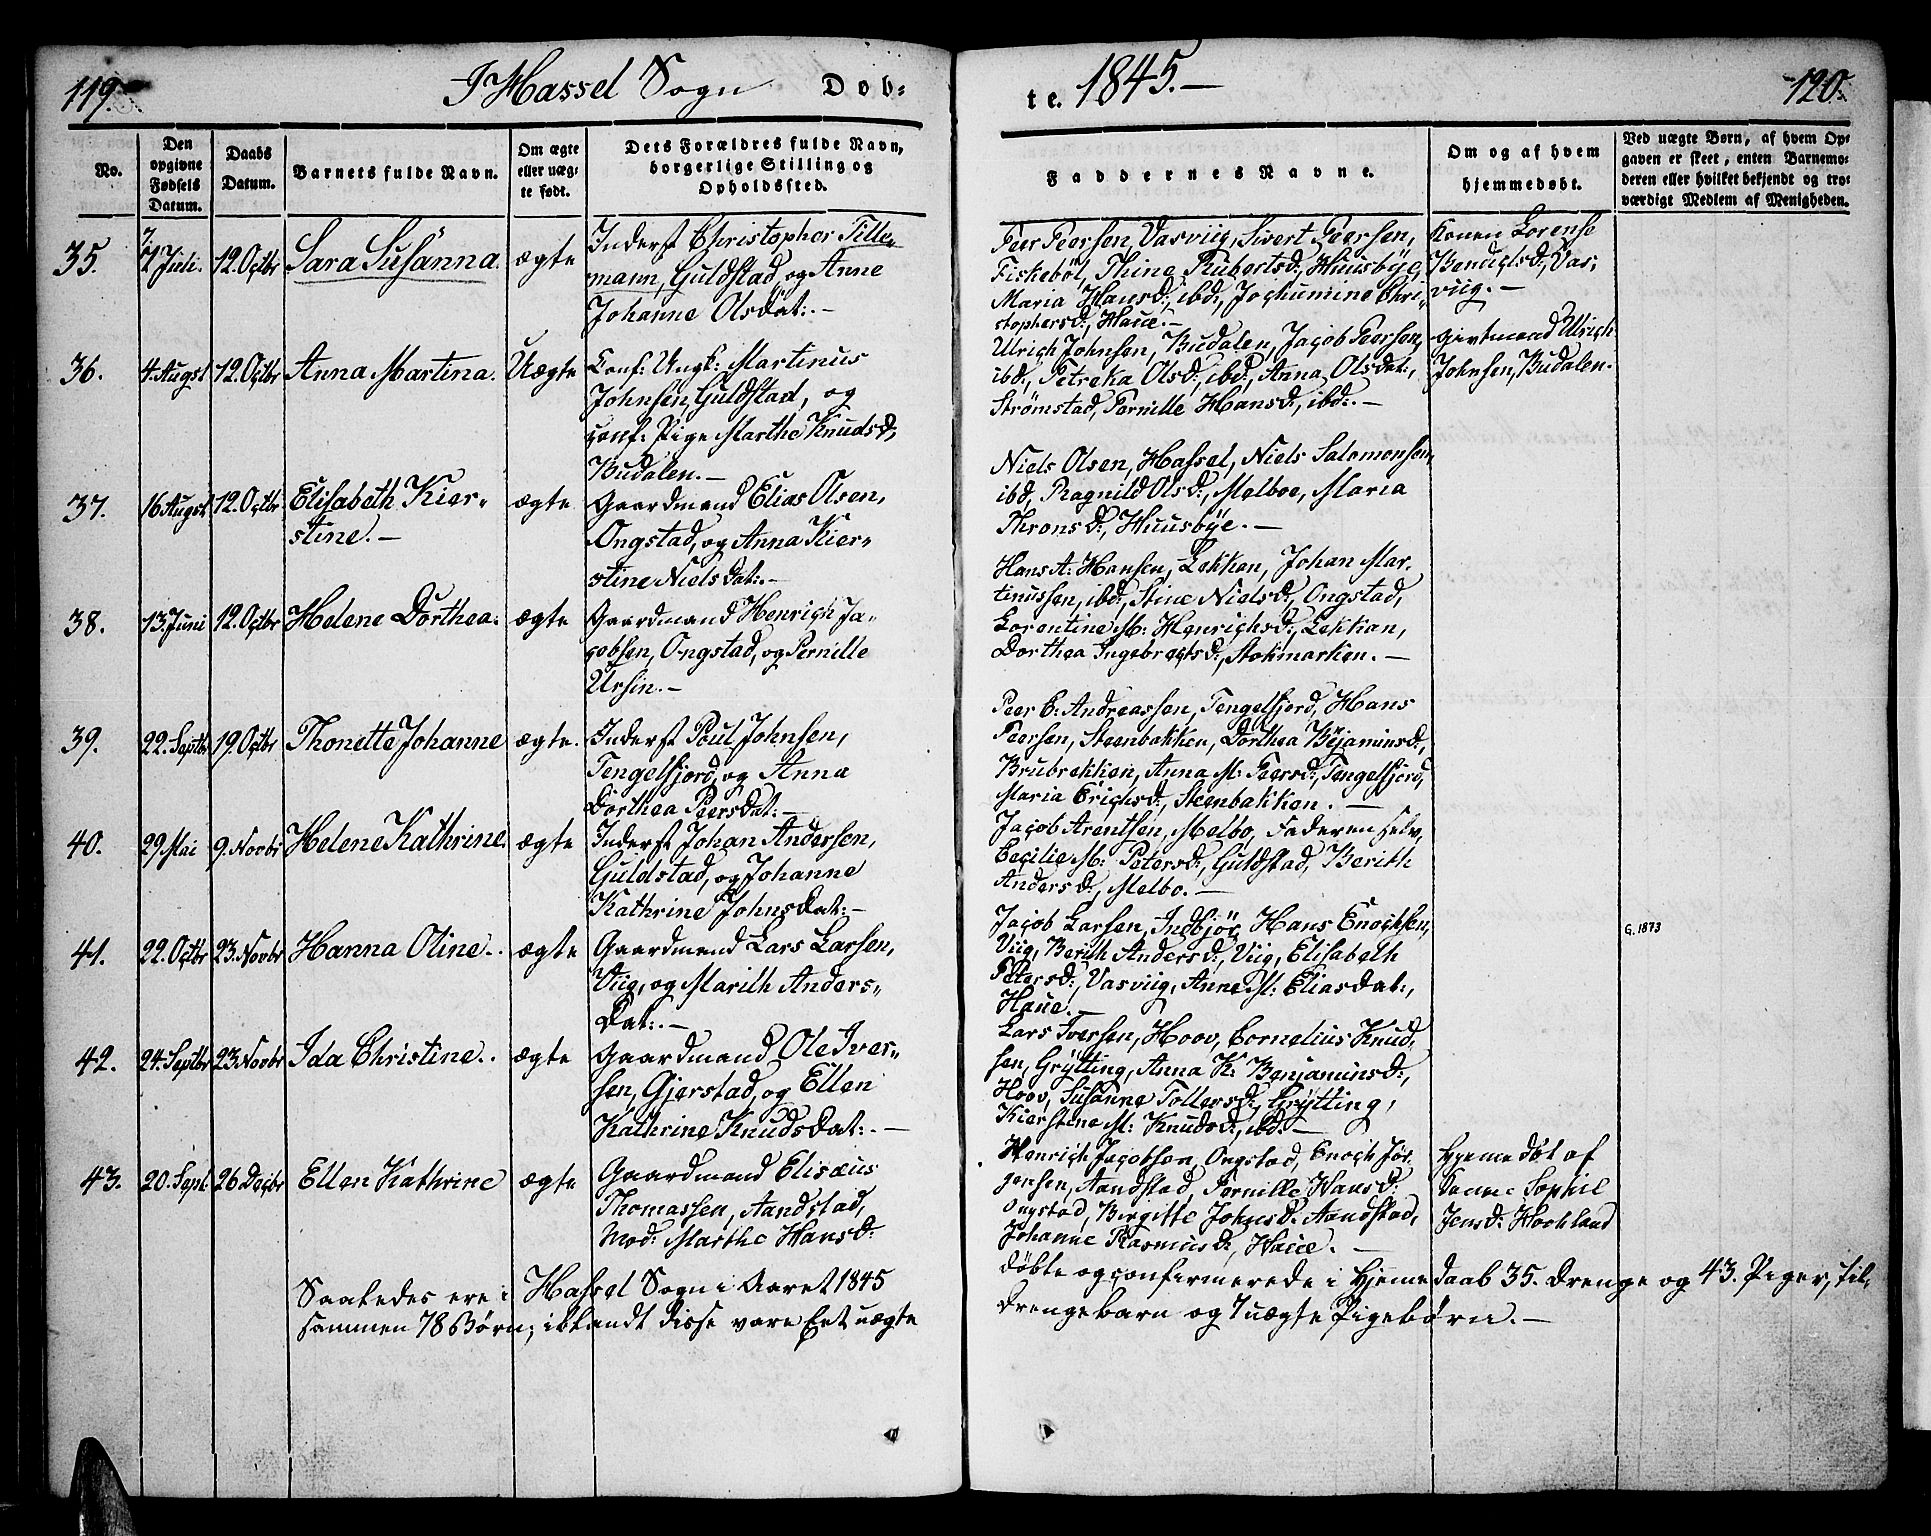 119.
I Hassel Sogn Døb-
No.
Den
opgivne
Fødsels
Datum.
Daabs
Datum.
Barnets fulde Navn.
Om ægte
eller uæg-
te født.
Dets Forældres fulde Navn,
borgerlige Stilling og
Opholdssted.
35.
Juli.
12. Octbr
Sara Susanna.
ægte
Inderst Christopher Tille-
mann, Guldstad, og Anne
Johanne Olsdat:.-
36.
4. Augst
12. Octbr
Anna Martina.
Uægte
Conf: Ungk: Martinus
Johnsen, Guldstad, og
conf: Pige Marthe Knudsd:,
Budalen.-
37.
16 Augst
12. Octbr
Elisabeth Kier-
stine.-
ægte
Gaardmand Elias Olsen,
Ongstad, og Anna Kier-
stine Nielsdat:.-
38.
13. Juni
12. Octbr
Helene Dorthea.
ægte
Gaardmand Henrich Ja-
cobsen, Ongstad, og Pernille
Ursin.-
39.
22. Septbr
19. Octbr
Thonette Johanne
ægte.
Inderst Poul Johnsen,
Tengelfjord, og Anna
Dorthea Peersdat:.-
40.
29. Mai
9. Novbr
Helene Kathrine.
ægte
Inderst Johan Andersen,
Guldstad, og Johanne
Kathrine Johnsdat:.-
41.
22. Octbr
23. Novbr
Hanna Oline.
ægte
Gaardmand Lars Larsen,
Viig, og Marith Anders-
dat:.-
42.
24. Septbr
23. Novbr
Ida Christine.
ægte
Gaardmand Ole Iver-
sen, Gjerstad, og Ellen
Kathrine Knudsdat:.-
43.
20. Sept.
26 Decbr
Ellen Kathrine
ægte
Gaardmand Elisæus
Thomassen, Aandstad,
Mod: Marthe Hansd:
Saaledes ere i Hassel Sogn i Aaret 1845
sammen 78 Børn; iblandt disse vare Eet uægte
te. 1845.-
120.
Faddernes Navne.
Om og af hvem
hjemmedøbt.
Ved uægte Børn, af hvem Op-
gaven er skeet, enten Barnemo-
deren eller hvilket bekjendt og tro-
værdigt Medlem af Menigheden.
Peer Peersen, Vasviig, Sivert Peersen,
Fiskebøl, Thine Rubertsd:, Huusbye,
Maria Hansd:, ibd:, Jochumine Chri-
stophersd:, Haue.-
Konen Lorense
Bendictsd:, Vas-
viig.-
Ulrich Johnsen, Budalen, Jacob Peersen,
ibd:, Petreka Olsd:, ibd:, Anna Olsdat:,
Strømstad, Pernille Hansd:, ibd:.-
Giftmand Ulrich
Johnsen, Budalen.
Niels Olsen, Hassel, Niels Salomonsen,
ibd, Ragnild Olsd:, Melboe, Maria
Thronsd:, Huusbye.-
Hans A: Hansen, Løkken, Johan Mar-
tinussen, ibd:, Stine Nielsd:, Ongstad,
Lorentine M: Henrichsd:, Løkkan,
Dorthea Ingebrectsd:, Stokmarken.-
Peer E: Andreassen, Tengelfjord, Hans
Peersen, Steenbakken, Dorthea Bejaminsd:,
Brubrekken, Anna M: Peersd:, Tengelfjord,
Maria Erichsd:, Steenbakken.-
Jacob Arentsen, Melbo, Faderen selv,
Cecilie M: Petersd:, Guldstad, Berith
Andersd:, Melbo.-
Jacob Larsen, Indbjør, Hans Enochsen,
Viig, Berith Andersd:, Viig, Elisabeth
Petersd:, Vasviig, Anne M: Eliasdat:,
Haue.-
G. 1873
Lars Iversen, Hoov, Cornelius Knud-
sen, Grytting, Anna K: Benjaminsd:,
Hoov, Susanne Tollersd:, Grytting,
Kierstine M: Knudsd:, ibd:.-
Henrich Jacobsen, Ongstad, Enoch Jør-
gensen, Aandstad, Pernille Hansd:
Ongstad, Birgitte Johnsd: Aandstad,
Johanne Rasmusd:, Haue.-
Hjemmedøbt af
Sophie
Jensd:
døbte og confirmerede i Hjemmedaab 35. Drenge og 43. Piger, til-
Drengebarn og 7 uægte Pigebørn.-